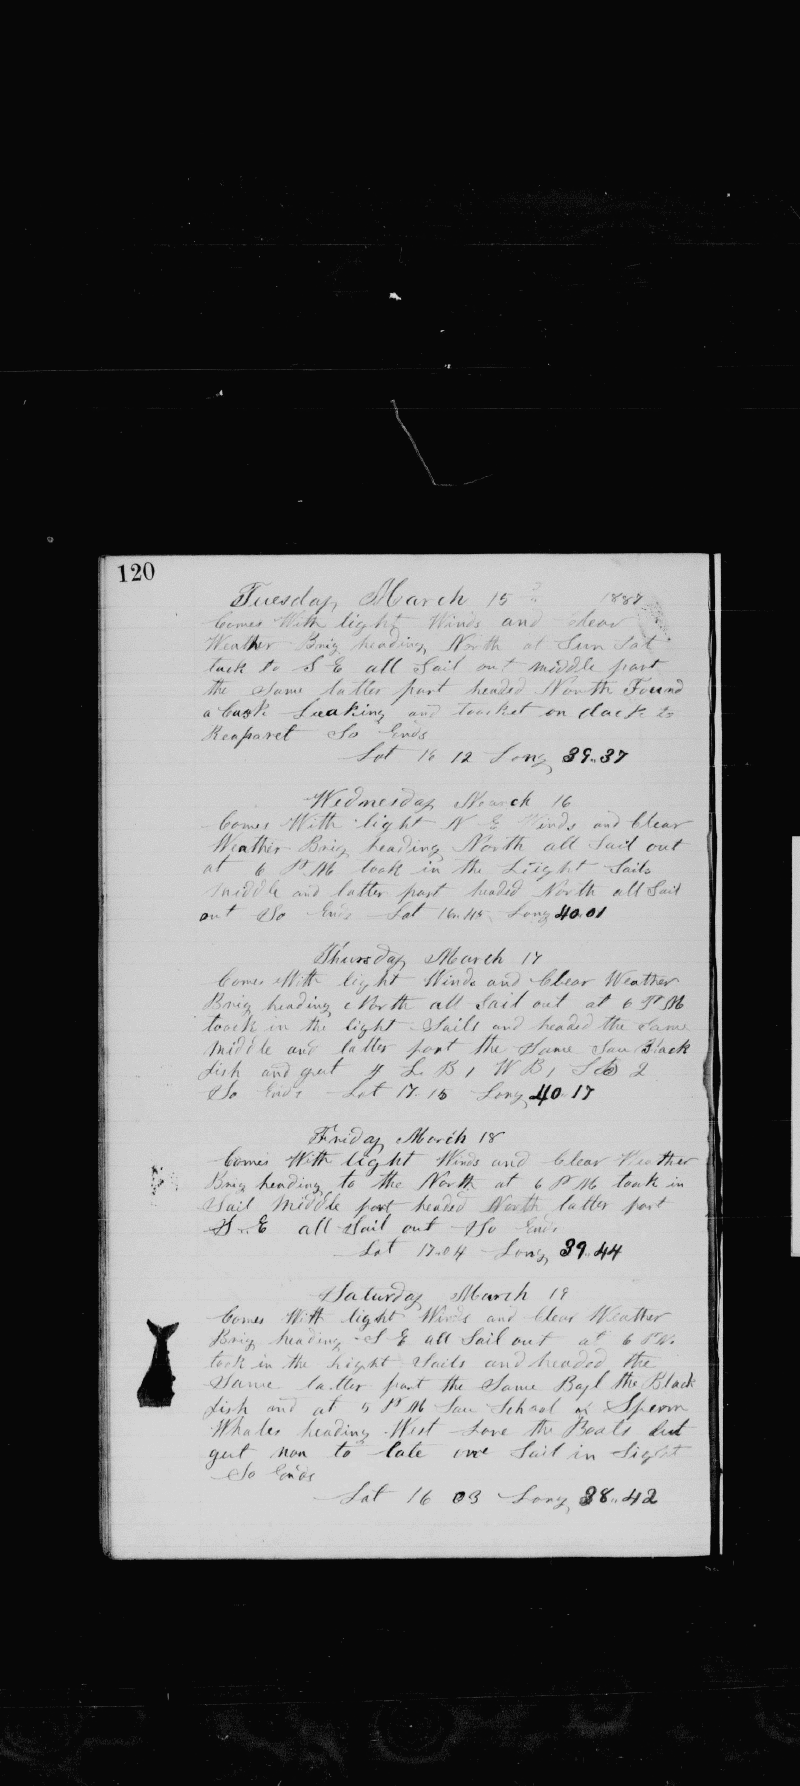 120
Tuesday March 15 1887
Comes With light Winds and Clear
Weather Brig heading North at Sun Sat
tack to S E all Sail out middle part
the Same latter part headed North Found
a Cask Leaking and toocket on dack to
Reaparet So Ends
Lat 16 12 Long 39..37
Wednesday March 16
Comes With light N E Winds and Clear
Weather Brig heading North all Sail out
at 6 P M took in the Liight Sails
middle and latter part headed North all Sail
out So Ends Lat 16..45 Long 40.01
Thursday March 17
Comes With light Winds and Clear Weather
Brig heading North all Sail out at 6 P M
toock in the light Sails and headed the Same
middle and latter part the Same Saw Black
fish and gut L B 1 W B 1 2
So Ends Lat 17.15 Long 40.17
Friday March 18
Comes With light Winds and Clear Weather
Brig heading to the North at 6 P M took in
Sail Middle part headed North latter part
S..E all Sail out So Ends
Lat 17.04 Long 39.44
Saturday March 19
Comes With light Winds and Clear Weather
Brig heading S E all Sail out at 6 P M
took in the Light Sails and headed the
Same latter part the Same Bayl the Black
fish and at 5 P M Saw School of Sperm
Whales heading West Lore the Boats but
gut non to late one Sail in Sight
So Ends
Lat 16 03 Long 38..42